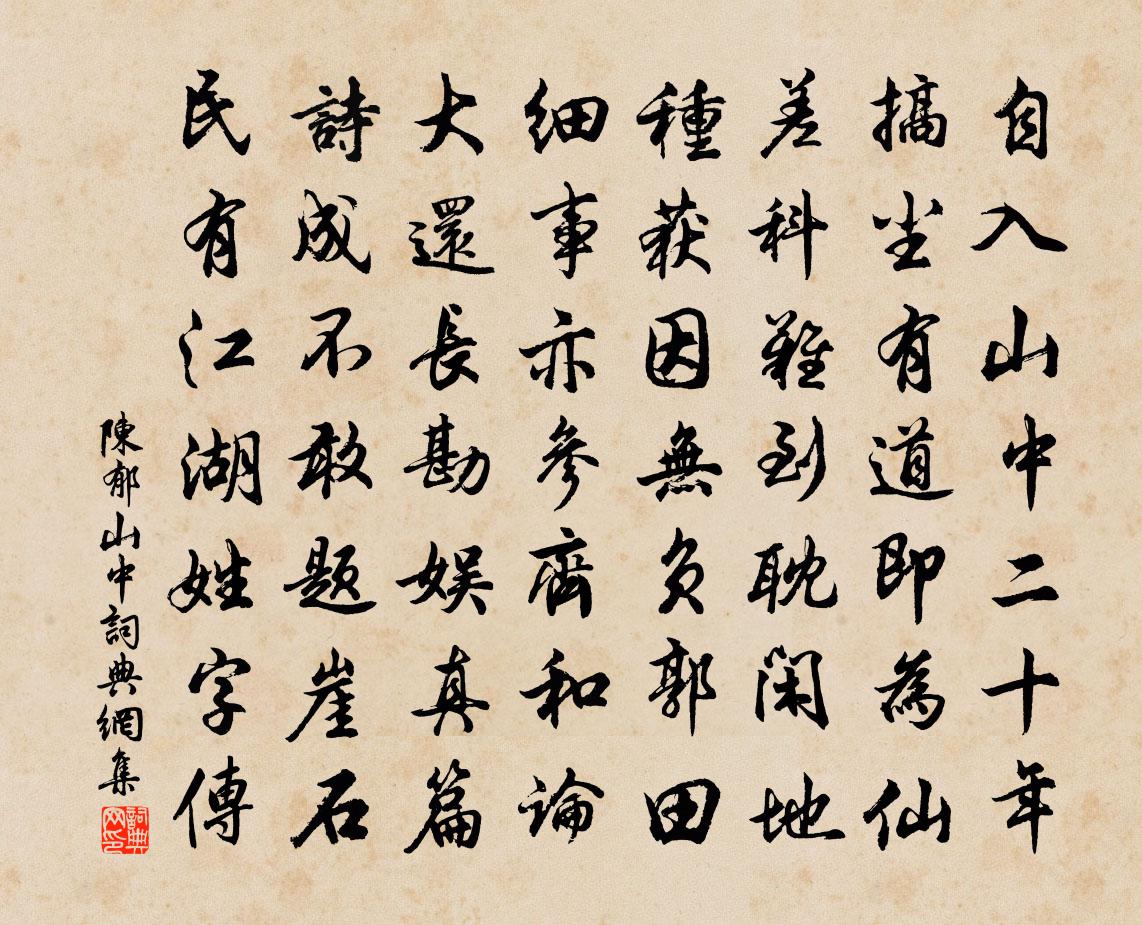 自入山中二十年
搞坐有道即為仙
差科難到耽閑地
種获因無負郭田
細事亦參齊和論
大還長勘娛真篇
詩成不敢題崖石
民有江湖姓字傳
陳郁山中詞典網集
詞典网印